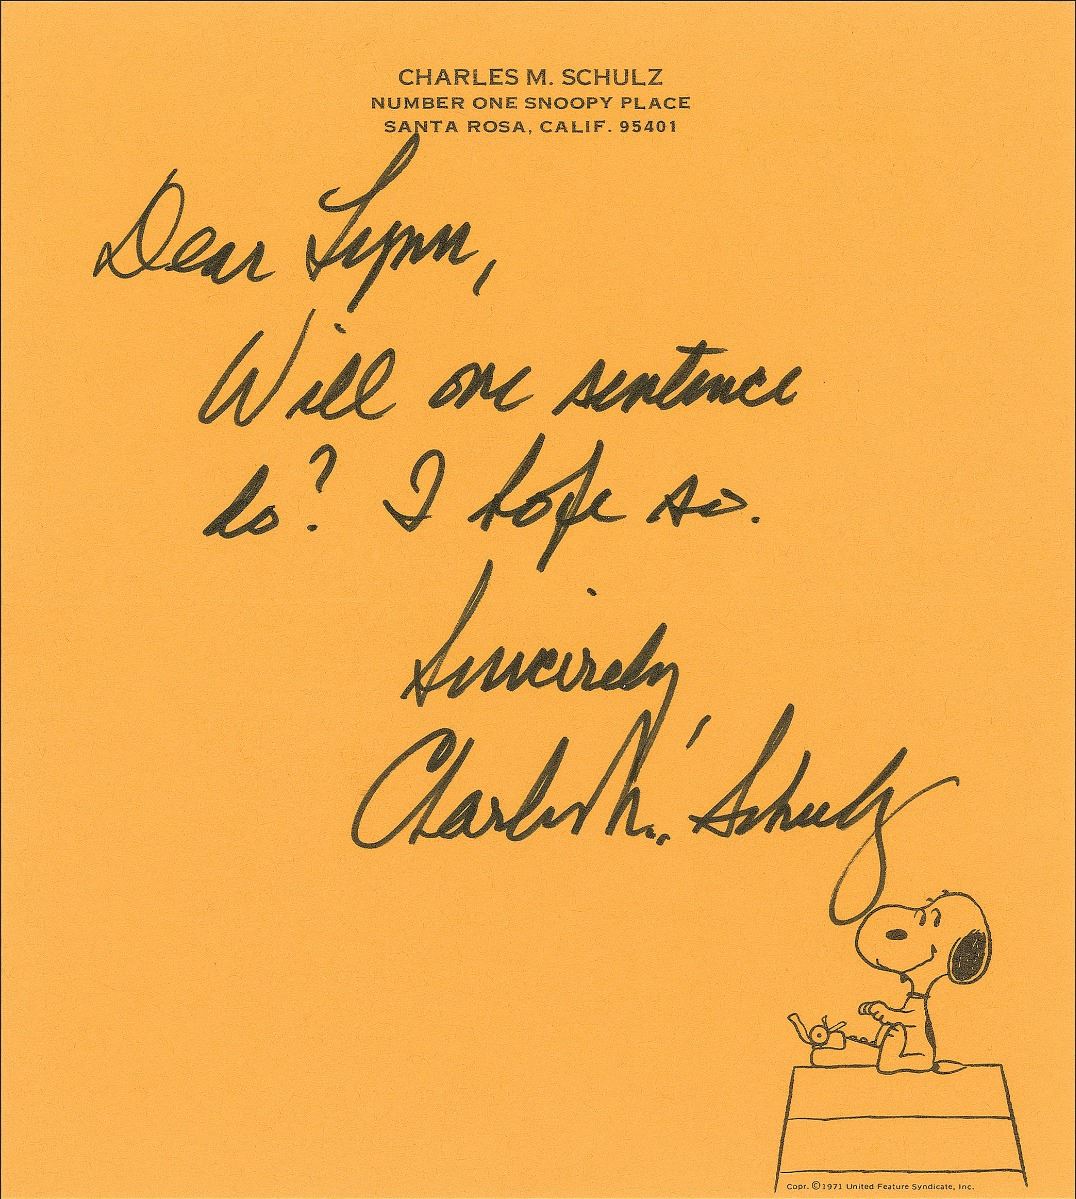 CHARLES M. SCHULZ
NUMBER ONE SNOOPY PLACE
SANTA ROSA, CALIF. 95401
Dear Lynn,
Will one sentence
do? I hope so.
Sincerely
Charles M. Schulz
Copr. ©1971 United Feature Syndicate, Inc.